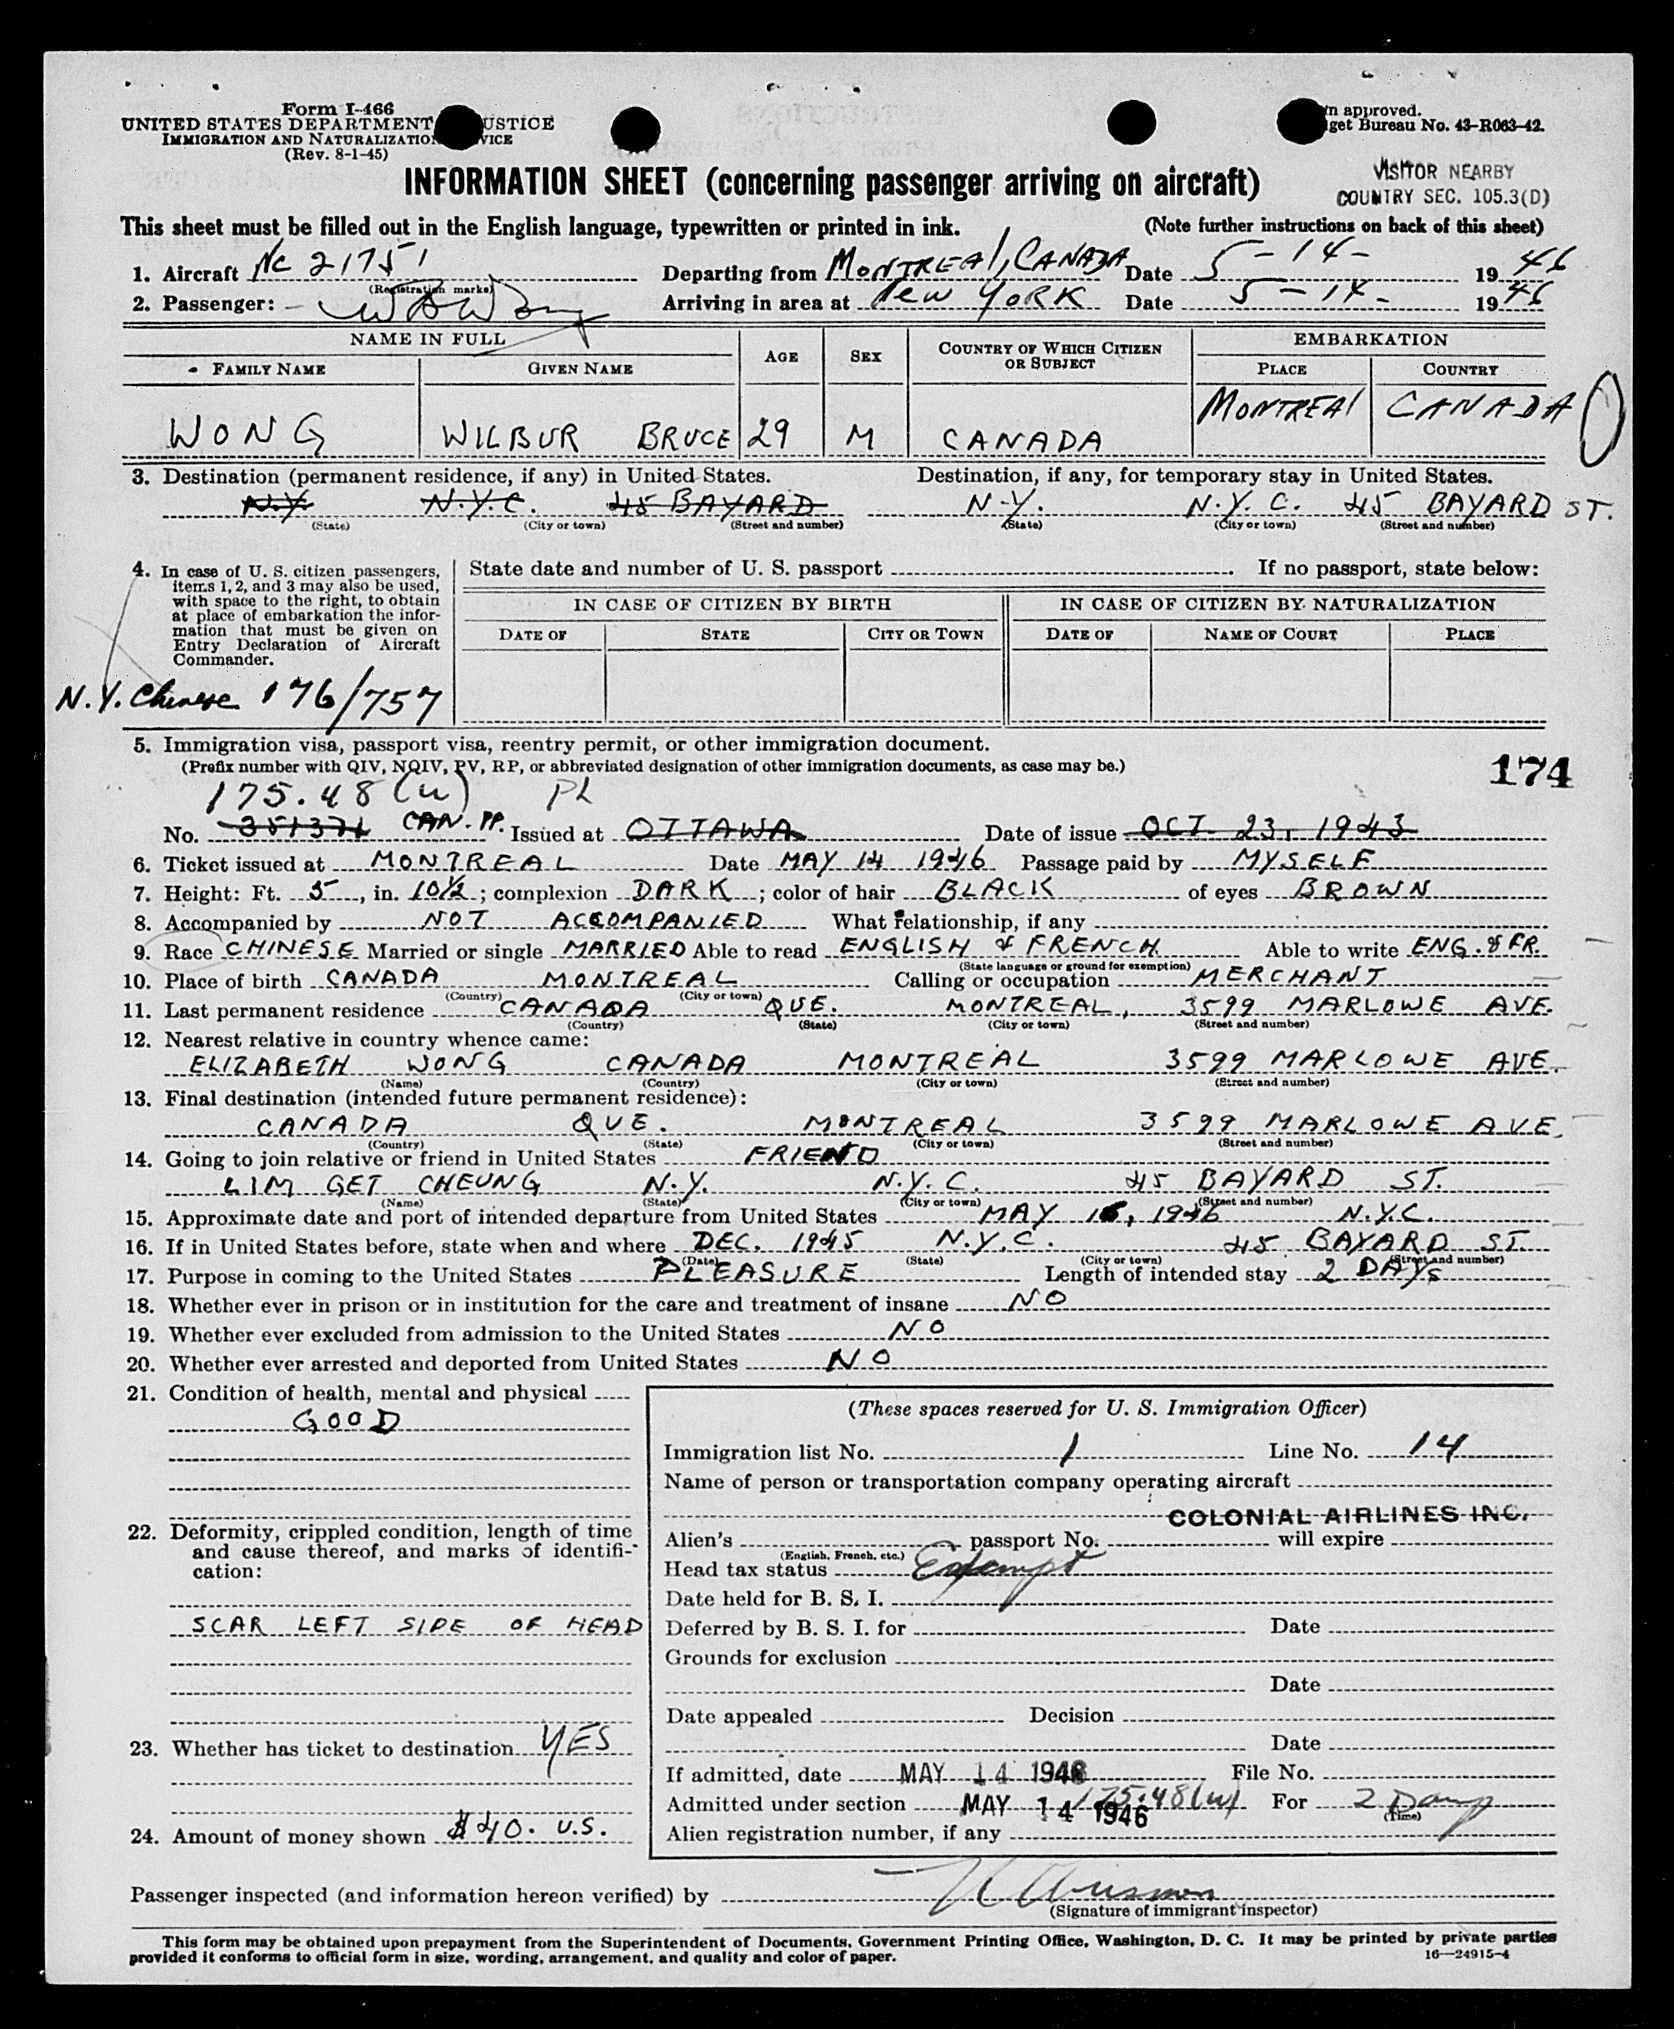 Form I-466
UNITED STATES DEPARTMENT USTICE
IMMIGRATION AND NATURALIZATION VICE
(Rev. 8-1-45)
n approved.
get Bureau No. 43-R063-42.
INFORMATION SHEET (concerning passenger arriving on aircraft)
VISITOR NEARBY
COUNTRY SEC. 105.3(D)
This sheet must be filled out in the English language, typewritten or printed in ink. (Note further instructions on back of this sheet)
1. Aircraft NC 21751 Departing from MONTREAL, CANADA Date 5-14- 1946
(Registration marks)
2. Passenger: Arriving in area at NEW YORK Date 5-14- 1946
NAME IN FULL AGE SEX COUNTRY OF WHICH CITIZEN OR SUBJECT EMBARKATION
FAMILY NAME GIVEN NAME PLACE COUNTRY
WONG WILBUR BRUCE 29 M CANADA MONTREAL CANADA
3. Destination (permanent residence, if any) in United States. Destination, if any, for temporary stay in United States.
N.Y. N.Y.C. 45 BAYARD N.Y. N.Y.C. 45 BAYARD ST.
(State) (City or town) (Street and number) (State) (City or town) (Street and number)
4. In case of U. S. citizen passengers, items 1, 2, and 3 may also be used, with space to the right, to obtain at place of embarkation the information that must be given on Entry Declaration of Aircraft Commander.
State date and number of U. S. passport If no passport, state below:
IN CASE OF CITIZEN BY BIRTH IN CASE OF CITIZEN BY NATURALIZATION
DATE OF STATE CITY OR TOWN DATE OF NAME OF COURT PLACE
N.Y. Chinese 176/757
5. Immigration visa, passport visa, reentry permit, or other immigration document.
(Prefix number with QIV, NQIV, PV, RP, or abbreviated designation of other immigration documents, as case may be.)
174
175.48(u) PL
No. 351371 CAN. PP. Issued at OTTAWA Date of issue OCT. 23, 1943
6. Ticket issued at MONTREAL Date MAY 14 1946 Passage paid by MYSELF
7. Height: Ft. 5, in. 10½; complexion DARK; color of hair BLACK of eyes BROWN
8. Accompanied by NOT ACCOMPANIED What relationship, if any
9. Race CHINESE Married or single MARRIED Able to read ENGLISH & FRENCH Able to write ENG. & FR.
(State language or ground for exemption)
10. Place of birth CANADA MONTREAL Calling or occupation MERCHANT
(Country) (City or town)
11. Last permanent residence CANADA QUE. MONTREAL, 3599 MARLOWE AVE.
(Country) (State) (City or town) (Street and number)
12. Nearest relative in country whence came:
ELIZABETH WONG CANADA MONTREAL 3599 MARLOWE AVE.
(Name) (Country) (City or town) (Street and number)
13. Final destination (intended future permanent residence):
CANADA QUE. MONTREAL 3599 MARLOWE AVE.
(Country) (State) (City or town) (Street and number)
14. Going to join relative or friend in United States FRIEND
LIM GET CHEUNG N.Y. N.Y.C. 45 BAYARD ST.
(Name) (State) (City or town) (Street and number)
15. Approximate date and port of intended departure from United States MAY 16, 1946 N.Y.C.
16. If in United States before, state when and where DEC. 1945 N.Y.C. 45 BAYARD ST.
(Date) (State) (City or town) (Street and number)
17. Purpose in coming to the United States PLEASURE Length of intended stay 2 DAYS
18. Whether ever in prison or in institution for the care and treatment of insane NO
19. Whether ever excluded from admission to the United States NO
20. Whether ever arrested and deported from United States NO
21. Condition of health, mental and physical
GOOD
22. Deformity, crippled condition, length of time and cause thereof, and marks of identification:
SCAR LEFT SIDE OF HEAD
23. Whether has ticket to destination YES
24. Amount of money shown $40. U.S.
(These spaces reserved for U. S. Immigration Officer)
Immigration list No. 1 Line No. 14
Name of person or transportation company operating aircraft
COLONIAL AIRLINES INC.
Alien's passport No. will expire
(English, French, etc.)
Head tax status Exempt
Date held for B. S. I.
Deferred by B. S. I. for Date
Grounds for exclusion
Date
Date appealed Decision
Date
If admitted, date MAY 14 1946 File No.
Admitted under section MAY 14 1946 175.48(u) For 2 Days
(Time)
Alien registration number, if any
Passenger inspected (and information hereon verified) by
(Signature of immigrant inspector)
This form may be obtained upon prepayment from the Superintendent of Documents, Government Printing Office, Washington, D. C. It may be printed by private parties
provided it conforms to official form in size, wording, arrangement, and quality and color of paper.
16—24915-4